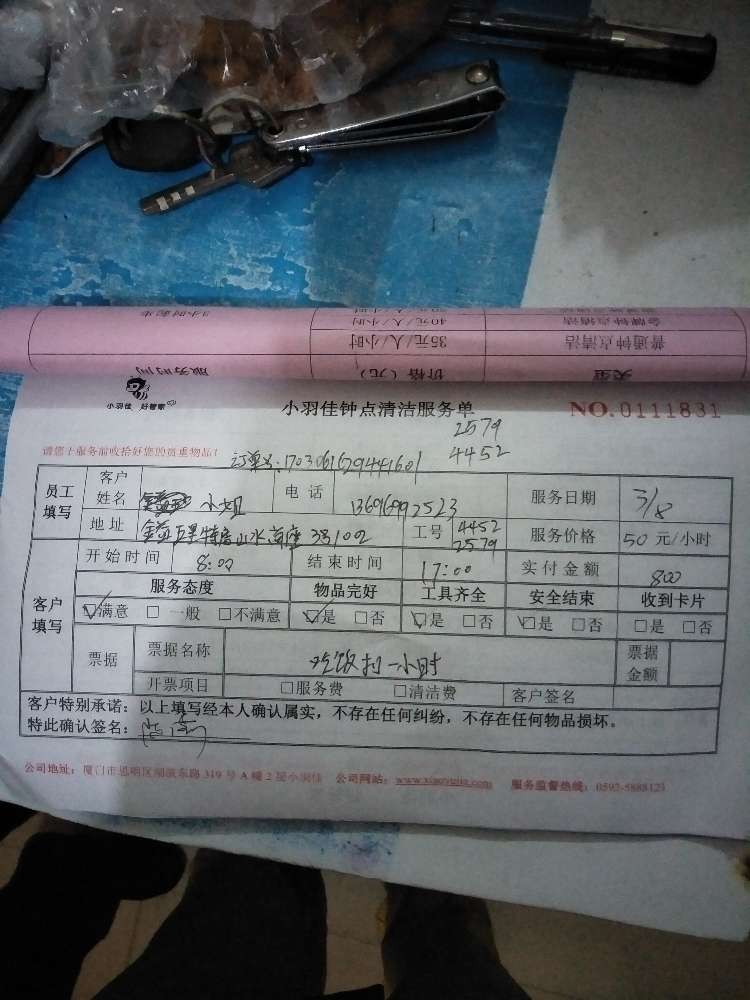 3小时起步
40元/人/小时
金牌钟点清洁
35元/人/小时
普通钟点清洁
服务时间
价格(元)
类型
小羽佳 好管家
小羽佳钟点清洁服务单
NO.0111831
2579
4452
请您于服务前收拾好您的贵重物品!
订单号:
员工填写
客户姓名
小姐
电话
13696992523
服务日期
3/8
地址
山水首座
工号
4452
2579
服务价格
50 元/小时
客户填写
开始时间
8:00
结束时间
17:00
实付金额
800
服务态度
物品完好
工具齐全
安全结束
收到卡片
☑满意 □ 一般 □不满意
☑是 □否
☑是 □否
☑是 □否
□是 □否
票据
票据名称
吃饭扣一小时
票据金额
开票项目
□服务费
□清洁费
客户签名
客户特别承诺:以上填写经本人确认属实,不存在任何纠纷,不存在任何物品损坏。
特此确认签名:
公司地址:厦门市思明区湖滨东路 319 号 A 幢 2 层小羽佳 公司网站:www.xiaoyujia.com 服务监督热线:0592-5888123